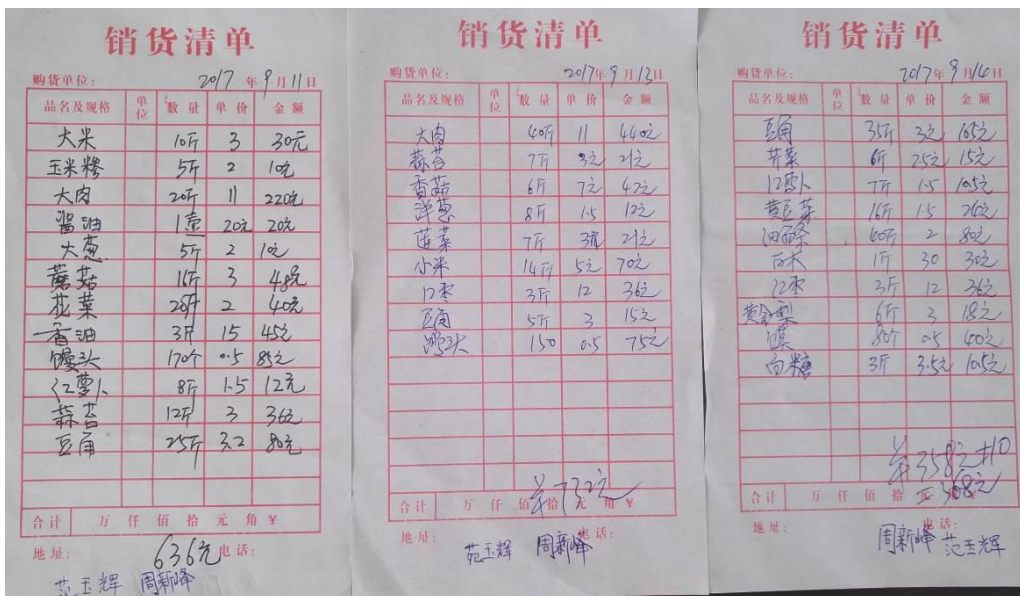 销货清单
购货单位: 2017年9月11日
品名及规格 单位 数量 单价 金额
大米 10斤 3 30元
玉米糁 5斤 2 10元
大肉 20斤 11 220元
酱油 1壶 20元 20元
大葱 5斤 2 10元
蘑菇 16斤 3 48元
花菜 20斤 2 40元
香油 3斤 15 45元
馒头 170个 0.5 85元
红萝卜 8斤 1.5 12元
蒜苔 12斤 3 36元
豆角 25斤 3.2 80元
合计 万仟佰拾元角¥
636元
地址: 电话:
范玉辉 周新峰
销货清单
购货单位: 2017年9月13日
品名及规格 单位 数量 单价 金额
大肉 40斤 11 440元
蒜苔 7斤 3元 21元
香菇 6斤 7元 42元
洋葱 8斤 1.5 12元
莲菜 7斤 21元
小米 14斤 5元 70元
红枣 3斤 12 36元
豆角 5斤 3 15元
馒头 150 0.5 75元
羊732元
合计 万仟佰拾元角¥
地址: 电话:
范玉辉 周新峰
销货清单
购货单位: 2017年9月14日
品名及规格 单位 数量 单价 金额
豆角 35斤 3元 105元
芹菜 6斤 2.5元 15元
7斤 1.5 10.5元
黄豆芽 16斤 1.5
40斤 2 80元
1斤 30 30元
红枣 3斤 12 36元
6斤 3 18元
80个 0.5 40元
白糖 3斤 3.5元 10.5元
358元+10
368元
合计 万仟佰拾元
地址: 电话:
周新峰 范玉辉